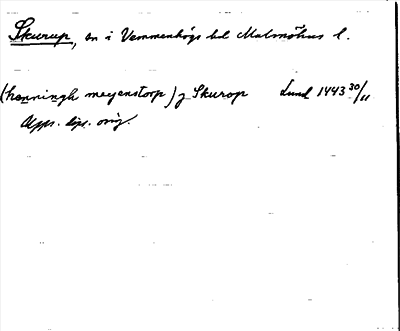 Skurup, sn i Vemmenhögs hd Malmöhus l.
(henningh meyenstorp) j Skurop Lund 1443 30/11
Upps. dipl. orig.